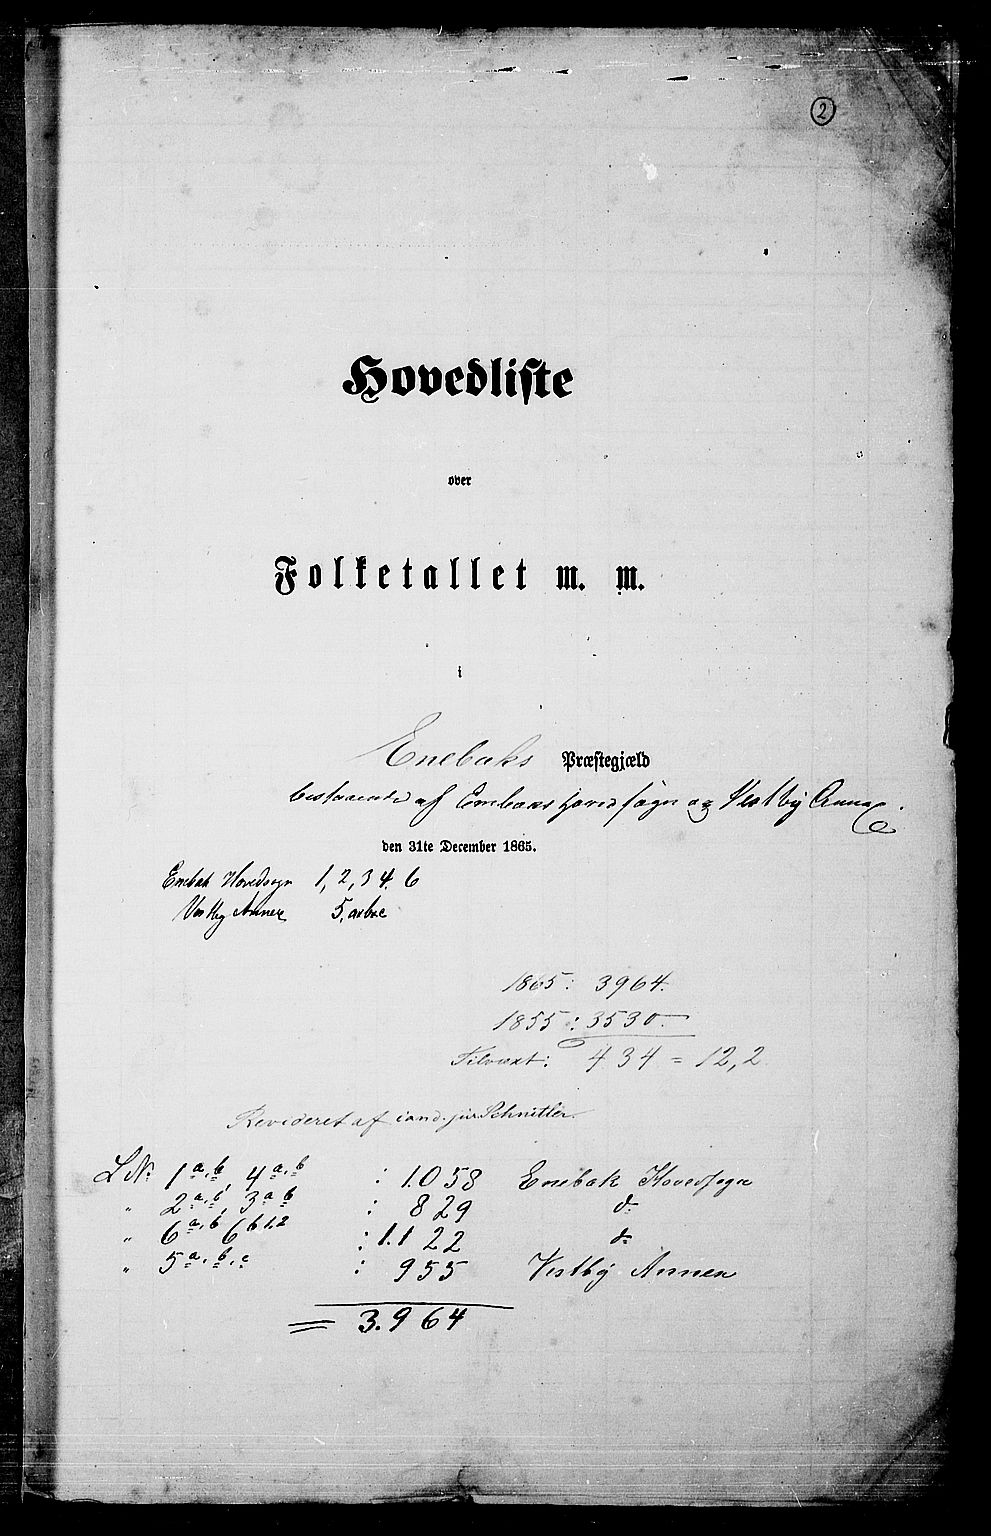 2
Hovedliste
over
Folketallet m. m.
i
Enebaks Præstegjæld
bestaaende af Enebaks Hovedsogn og Vestby Annex.
den 31te December 1865.
Enebak Hovedsogn 1, 2, 3 4. 6
Vestby Annex 5, a b c
1865: 3964.
1855: 3530.
Tilvæxt: 434 = 12,2
Revideret af cand. jur Schnitler.
L No 1 a, b, 4 a, b : 1.058 Enebak Hovedsogn
" 2 a, b, 3 a b : 829 do
" 6 a, b 6 b 1.2 : 1.122 do
" 5 a, b, c : 955 Vestby Annex
= 3.964